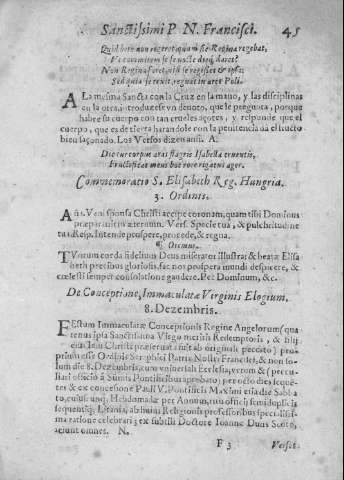 Sanctissimi P. N. Francisci. 45
Quid
Vt
Non Regina foret, nisi se regisset & ipsa:
Sed quia se rexit, regnat in arce Poli.
A La mesma Sancta con la Cruz en la mano, y las disciplinas
en la otra, introduzese vn deuoto, que le pregunta, porque
habre su cuerpo con tan crueles açotes, y responde que el
cuerpo, que es de tierra harandole con la penitencia da el fructo
bien saçonado. Los Versos dizen ansi. A.
Dic cur corpus aras flagris Isabella cruentis,
Fructificat meus hoc rore rigatus ager.
Commemoratio S. Elisabeth Reg. Hungriæ.
3. Ordinis.
Añs. Veni sponsa Christi accipe coronam, quam tibi Dominus
præparauit in æternum. Vers. Specie tua, & pulchritudine
tua. Resp. Intende prospere, procede, & regna.
¶ Oremus.
TVorum corda fidelium Deus miserator illustra; & beatæ Elisa
beth precibus gloriosis, fac nos prospera mundi despicere, &
cœlesti semper consolatione gaudere. Per Dominum, &c.
De Conceptione, Immaculatæ Virginis Elogium.
8. Dezembris.
FEstum Immaculatæ Conceptionis Reginæ Angelorum (qua
tenus ipsa Sanctissima Virgo meritis Redemptoris, & filij
eius Iesu Christi præseruata fuit ab originali peccato) pro-
prium esse Ordinis Seraphici Patris Nostri Francisci, & non so-
lum die 8. Dezembris, cum vniuersali Ecclesia, verum & (precu-
liari officio à Summis Pontificibus aprobato) per octo dies seque-
tes & ex concessione Pauli V. Pontificis Maximi etiã die Sabba-
to, cuiusuunq; Hebdomadæ per Annum, ritu officij semiduplicis
sequentiq; Letania, ab huius Religionis professoribus specialissi-
ma ratione celebrari; ex subtili Doctore Ioanne Duns Scoto,
sciunt omnes. N.
F 3 Versos.